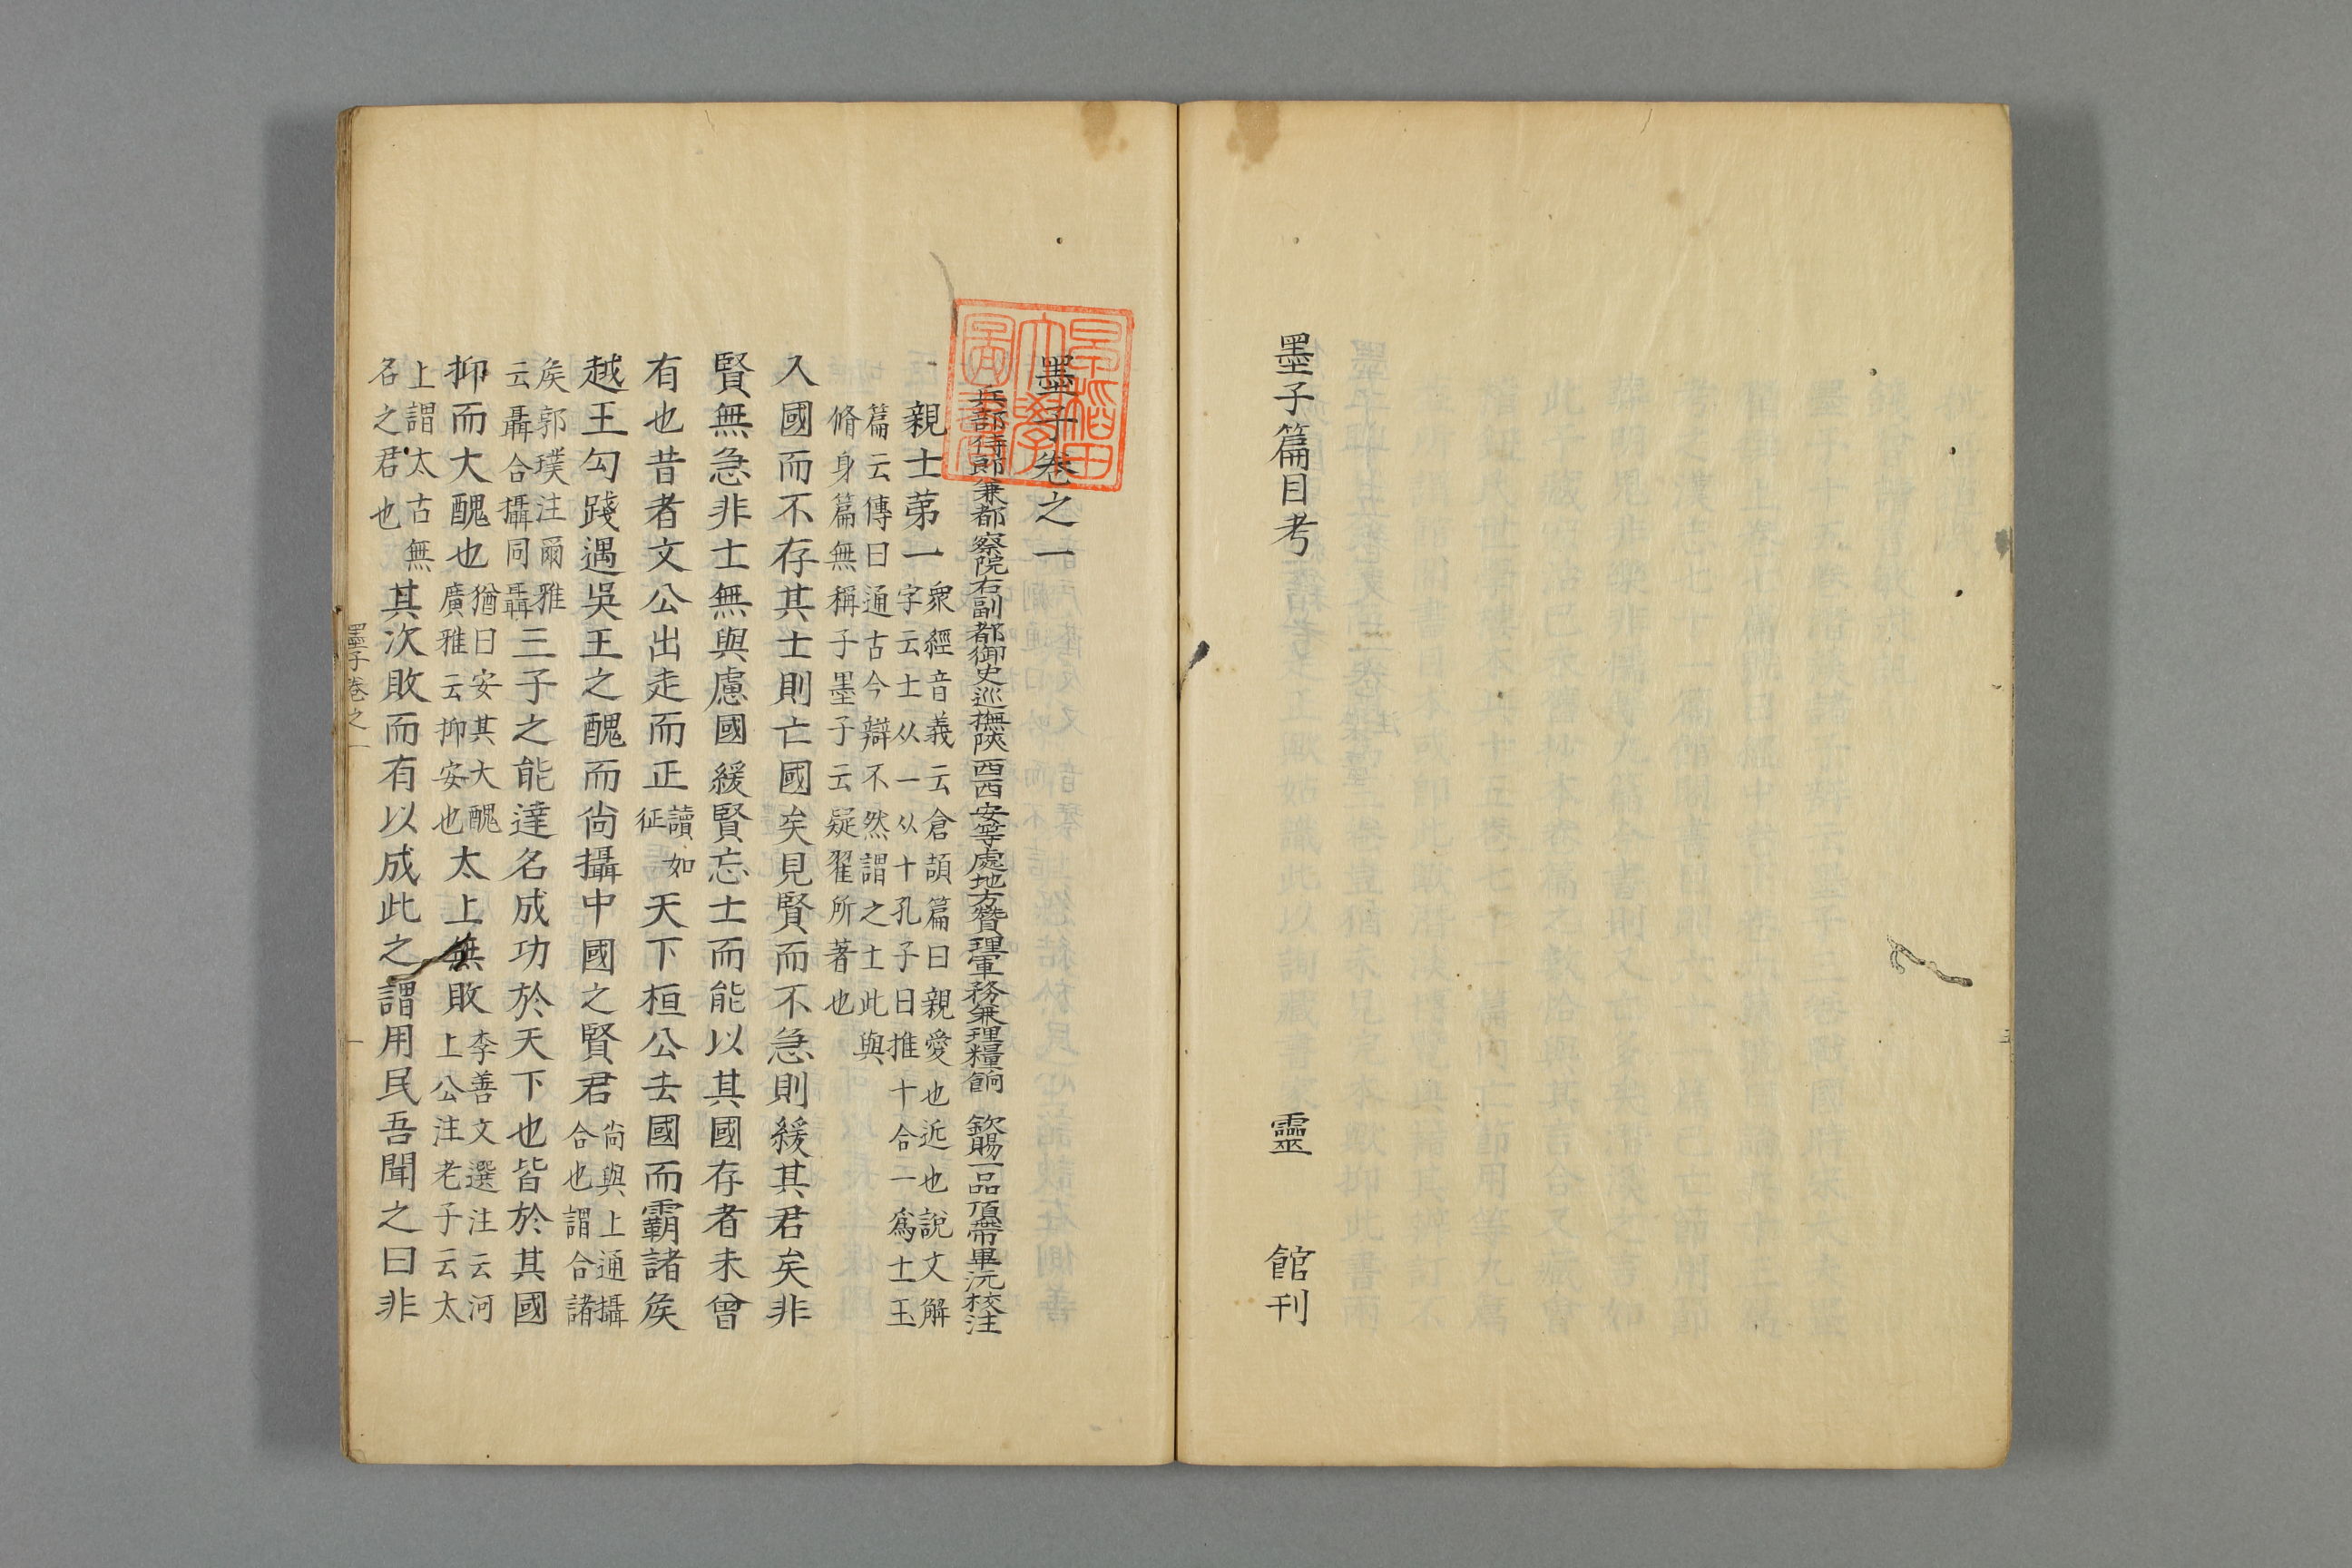 墨子篇目考 靈 館刊
墨子卷之一
兵部侍郎兼都察院右副都御史巡撫陝西西安等處地方贊理軍務兼理糧餉 欽賜一品頂帶畢沅校注
親士第一 衆經音義云倉頡篇曰親愛也近也說文解
字云士从一从十孔子曰推十合一爲士玉
篇云傳曰通古今辯不然謂之士此與
脩身篇無稱子墨子云疑翟所著也
入國而不存其士則亡國矣見賢而不急則緩其君矣非
賢無急非士無與慮國緩賢忘士而能以其國存者未曾
有也昔者文公出走而正讀如征天下桓公去國而霸諸矦
越王勾踐遇吳王之醜而尙攝中國之賢君尙與上通攝合也謂合諸
矦郭璞注爾雅云聶合攝同聶三子之能達名成功於天下也皆於其國
抑而大醜也猶曰安其大醜廣雅云抑安也太上無敗李善文選注云河上公注老子云太
上謂太古無名之君也其次敗而有以成此之謂用民吾聞之曰非
墨子卷之一 一
早稻田大學圖書